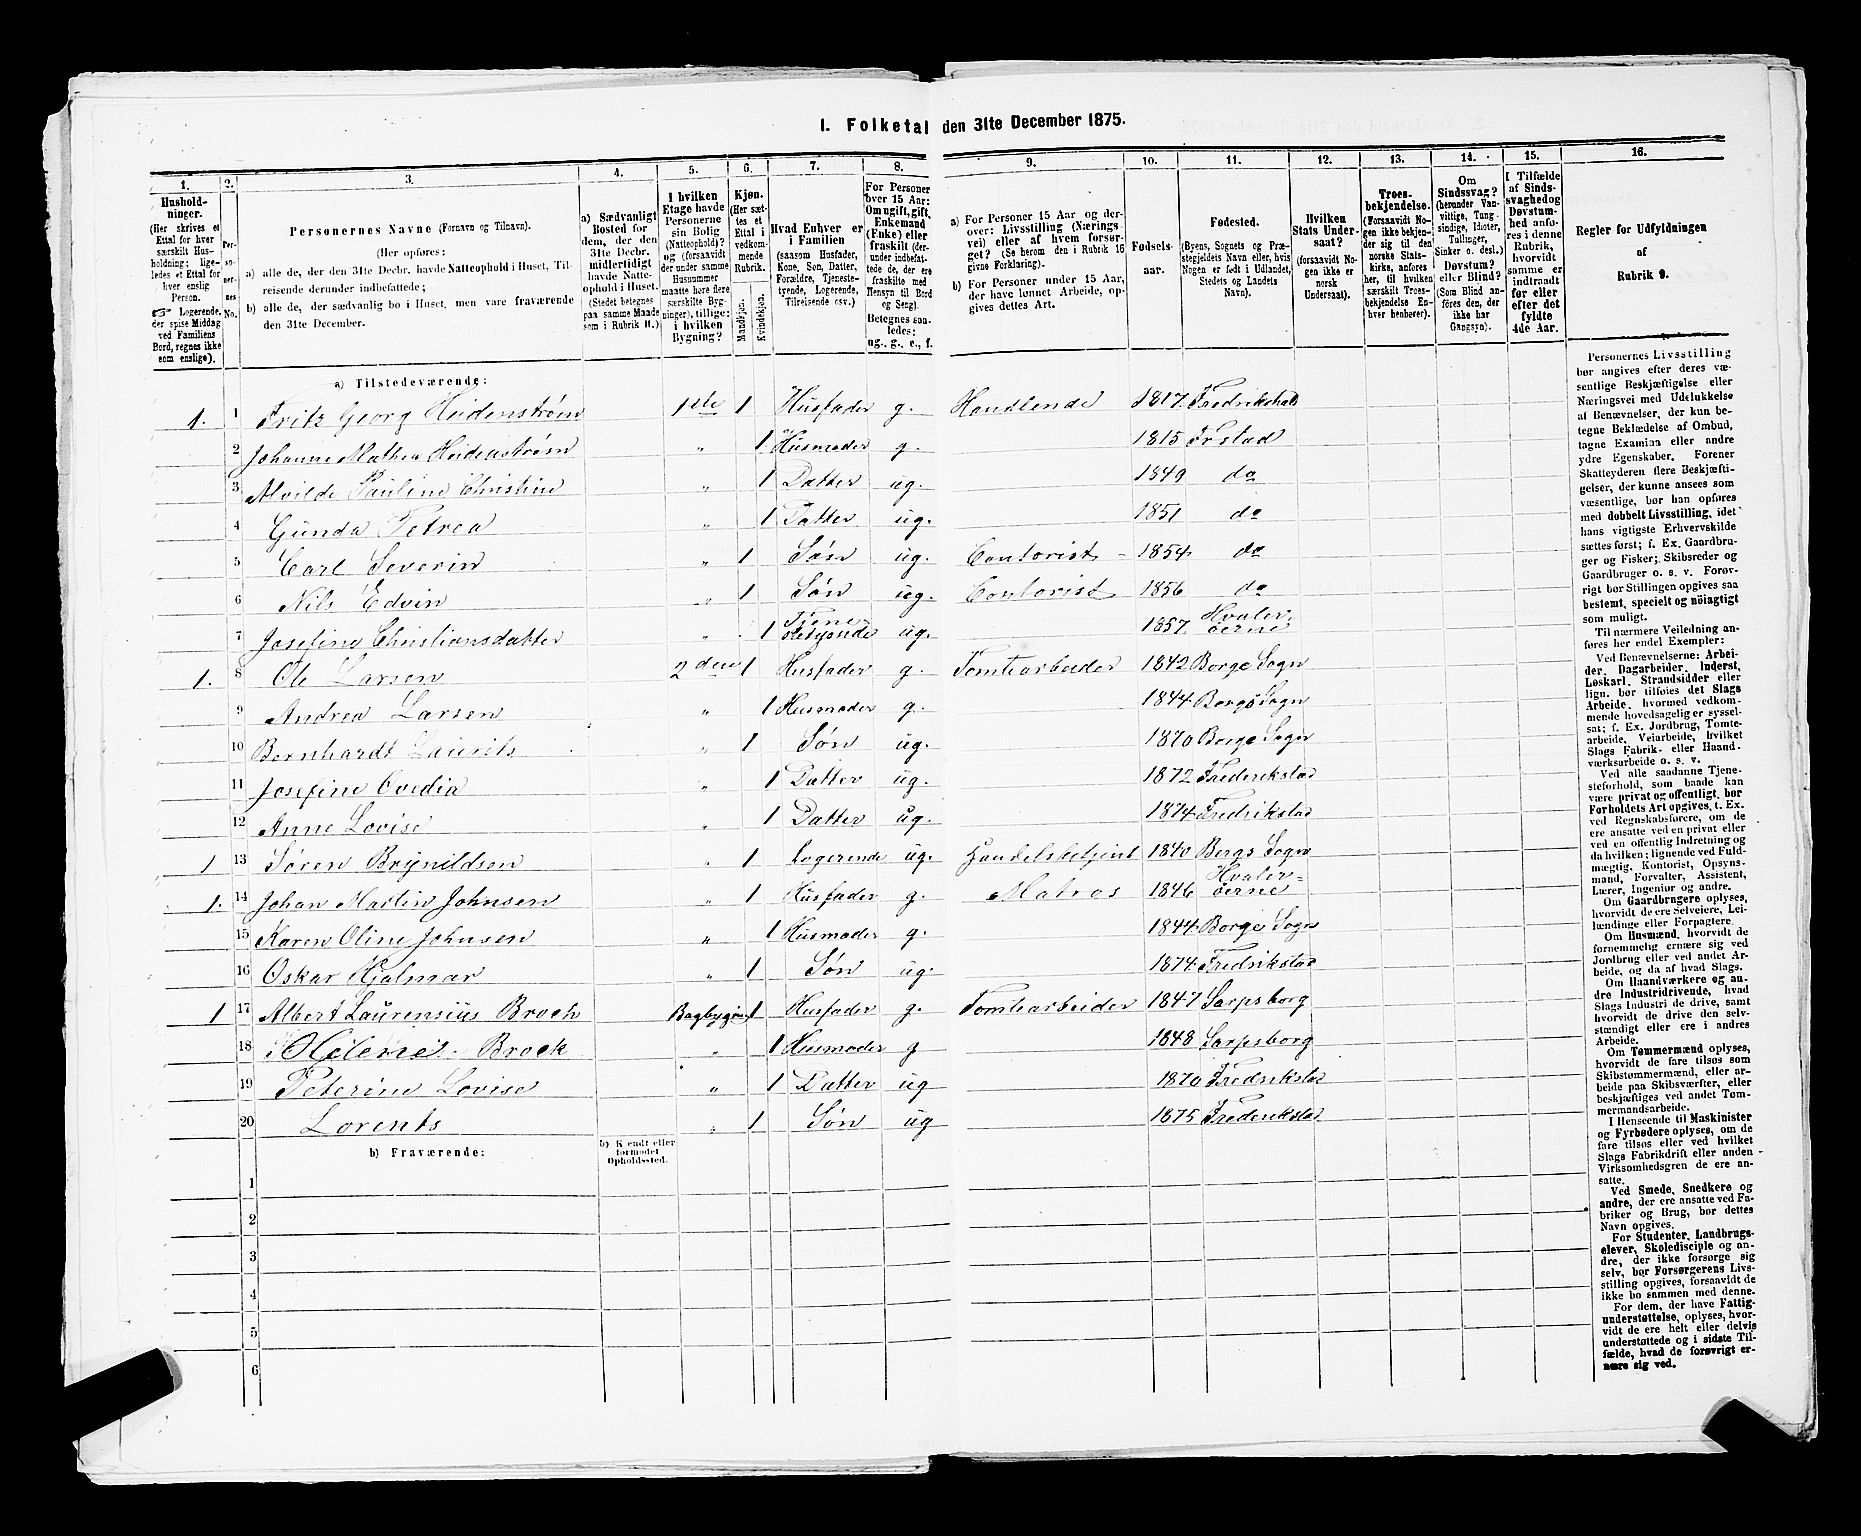 1. Folketal den 31te December 1875.
1. 2. 3. 4. 5. 6. 7. 8. 9. 10. 11. 12. 13. 14. 15. 16.
Hushold-
ninger.
(Her skrives et
Ettal for hver
særskilt Hus-
holdning; lige-
ledes et Ettal for
hver enslig
Person.
☞ Logerende,
der spise Middag
ved Familiens
Bord, regnes ikke
som enslige).
Per-
so-
ner-
nes
No.
Personernes Navne (Fornavn og Tilnavn).
(Her opføres:
a) alle de, der den 31te Decbr. havde Natteophold i Huset, Til-
reisende derunder indbefattede;
b) alle de, der sædvanlig bo i Huset, men vare fraværende
den 31te December.
a) Sædvanligt
Bosted for
dem, der den
31te Decbr.
midlertidigt
havde Natte-
ophold i Huset.
(Stedet betegnes
paa samme Maade
som i Rubrik 11.)
I hvilken
Etage havde
Personerne
sin Bolig
(Natteophold)?
og (forsaavidt
der under samme
Husnummer
maatte høre flere
særskilte Byg-
ninger), tillige:
i hvilken
Bygning?
Kjøn.
(Her sæt-
tes et
Ettal i
vedkom-
mende
Rubrik.
Mandkjøn.
Kvindekjøn.
Hvad Enhver er
i Familien
(saasom Husfader,
Kone, Søn, Datter,
Forældre, Tjeneste-
tyende, Logerende,
Tilreisende osv.)
For Personer
over 15 Aar:
Om ugift, gift,
Enkemand
(Enke) eller
fraskilt (der-
under indbefat-
tede de, der ere
fraskilte med
Hensyn til Bord
og Seng).
Betegnes saa-
ledes:
ug., g., e., f.
a) For Personer 15 Aar og der-
over: Livsstilling (Nærings-
vei) eller af hvem forsør-
get? (Se herom den i Rubrik 16
givne Forklaring).
b) For Personer under 15 Aar,
der have lønnet Arbeide, op-
gives dettes Art.
Fødsels-
aar.
Fødested.
(Byens, Sognets og Præ-
stegjeldets Navn eller, hvis
Nogen er født i Udlandet,
Stedets og Landets
Navn).
Hvilken
Stats Under-
saat?
(forsaavidt No-
gen ikke er
norsk
Undersaat).
Troes-
bekjendelse.
(Forsaavidt No-
gen ikke bekjen-
der sig til den
norske Stats-
kirke, anføres
her, til hvilken
særskilt Troes-
bekjendelse En-
hver henhører).
Om
Sindssvag?
(herunder Van-
vittige, Tung-
sindige, Idioter,
Tullinger,
Sinker o. desl.)
Døvstum?
eller Blind?
(Som Blind an-
føres den, der
ikke har
Gangsyn).
I Tilfælde
af Sinds-
svaghed og
Døvstum-
hed anfø-
res i denne
Rubrik,
hvorvidt
samme er
indtraadt
før eller
efter det
fyldte
4de Aar.
Regler for Udfyldningen
af
Rubrik 9.
a) Tilstedeværende:
1. 1 Fritz Georg Heidenstrøm 1ste 1 Husfader g. Handlende 1817 Fredrikshald
2 Johanne Mathea Heidenstrøm „ 1 Husmoder g. 1815 Frstad
3 Alvilde Pauline Christine „ 1 Datter ug. 1849 do
4 Gunda Petrea „ 1 Datter ug. 1851 do
5 Carl Severin „ 1 Søn ug. Contorist 1854 do
6 Nils Edvin „ 1 Søn ug. Contorist 1856 do
7 Josefine Christiansdatter „ 1 Tjeneste­tyende ug. 1857 Hvaler-øerne
1. 8 Ole Larsen 2den 1 Husfader g. Tomtearbeider 1842 Borge Sogn
9 Andrea Larsen „ 1 Husmoder g. 1844 Borge Sogn
10 Bernhardt Laurits „ 1 Søn ug. 1870 Borge Sogn
11 Josefine Ovedia „ 1 Datter ug. 1872 Frederikstad
12 Anne Lovise „ 1 Datter ug. 1874 Fredrikstad
1 13 Søren Brynildsen „ 1 Logerende ug. Handelsbetjent 1840 Bergs Sogn
1. 14 Johan Martin Johnsen „ 1 Husfader g. Matros 1846 Hvaler-øerne
15 Karen Oline Johnsen „ 1 Husmoder g. 1844 Borge Sogn
16 Oskar Hjalmar „ 1 Søn ug. 1874 Fredrikstad
1 17 Albert Laurensius Broch Bagbygn. 1 Husfader g. Tomtearbeider 1847 Sarpsborg
18 Helene Broch „ 1 Husmoder g 1848 Sarpsborg
19 Peterine Lovise „ 1 Datter ug 1870 Fredrikstad
20 Lorents „ 1 Søn ug 1875 Frederikstad
b) Fraværende:
b) Kjendt eller
formodet
Opholdssted.
1
2
3
4
5
6
Personernes Livsstilling
bør angives efter deres væ-
sentlige Beskjæftigelse eller
Næringsvei med Udelukkelse
af Benævnelser, der kun be-
tegne Beklædelse af Ombud,
tagne Examina eller andre
ydre Egenskaber. Forener
Skatteyderen flere Beskjæfti-
gelser, der kunne ansees som
væsentlige, bør han opføres
med dobbelt Livsstilling, idet
hans vigtigste Erhvervskilde
sættes først; f. Ex. Gaardbru-
ger og Fisker; Skibsreder og
Gaardbruger o. s. v. Forøv-
rigt bør Stillingen opgives saa
bestemt, specielt og nöiagtigt
som muligt.
Til nærmere Veiledning an-
føres her endel Exempler:
Ved Benævnelserne: Arbei-
der, Dagarbeider, Inderst,
Løskarl, Strandsidder eller
lign. bør tilføies det Slags
Arbeide, hvormed vedkom-
mende hovedsagelig er syssel-
sat; f. Ex. Jordbrug, Tomte-
arbeide, Veiarbeide, hvilket
Slags Fabrik- eller Haand-
værksarbeide o. s. v.
Ved alle saadanne Tjene-
steforhold, som baade kan
være privat og offentligt, bør
Forholdets Art opgives, t. Ex.
ved Regnskabsførere, om de
ere ansatte ved en privat eller
ved en offentlig Indretning og
da hvilken; lignende ved Fuld-
mægtig, Kontorist, Opsyns-
mand, Forvalter, Assistent,
Lærer, Ingeniør og andre.
Om Gaardbrugere oplyses,
hvorvidt de ere Selveiere, Lei-
lændinge eller Forpagtere.
Om Husmænd, hvorvidt de
fornemmelig ernære sig ved
Jordbrug eller ved andet Ar-
beide, og da af hvad Slags.
Om Haandværkere og an-
dre Industridrivende, hvad
Slags Industri de drive, samt
hvorvidt de drive den selv-
stændigt eller ere i andres
Arbeide.
Om Tømmermænd oplyses,
hvorvidt de fare tilsøs som
Skibstømmermænd, eller ar-
beide paa Skibsværfter, eller
beskjæftiges ved andet Tøm-
mermandsarbeide.
I Henseende til Maskinister
og Fyrbødere oplyses, om de
fare tilsøs eller ved hvilket
Slags Fabrikdrift eller anden
Virksomhedsgren de ere an-
satte.
Ved Smede, Snedkere og
andre, der ere ansatte ved Fa-
briker og Brug, bør dettes
Navn opgives.
For Studenter, Landbrugs-
elever, Skoledisciple og an-
dre, der ikke forsørge sig
selv, bør Forsørgerens Livs-
stilling opgives, forsaavidt de
ikke bo sammen med denne.
For dem, der have Fattig-
understøttelse, oplyses, hvor-
vidt de ere helt eller delvis
understøttede og i sidste Til-
fælde, hvad de forøvrigt er-
nære sig ved.